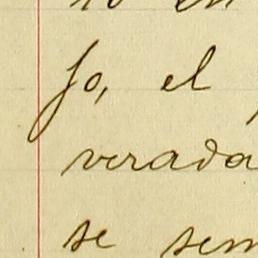 jo, el
verada
se sem